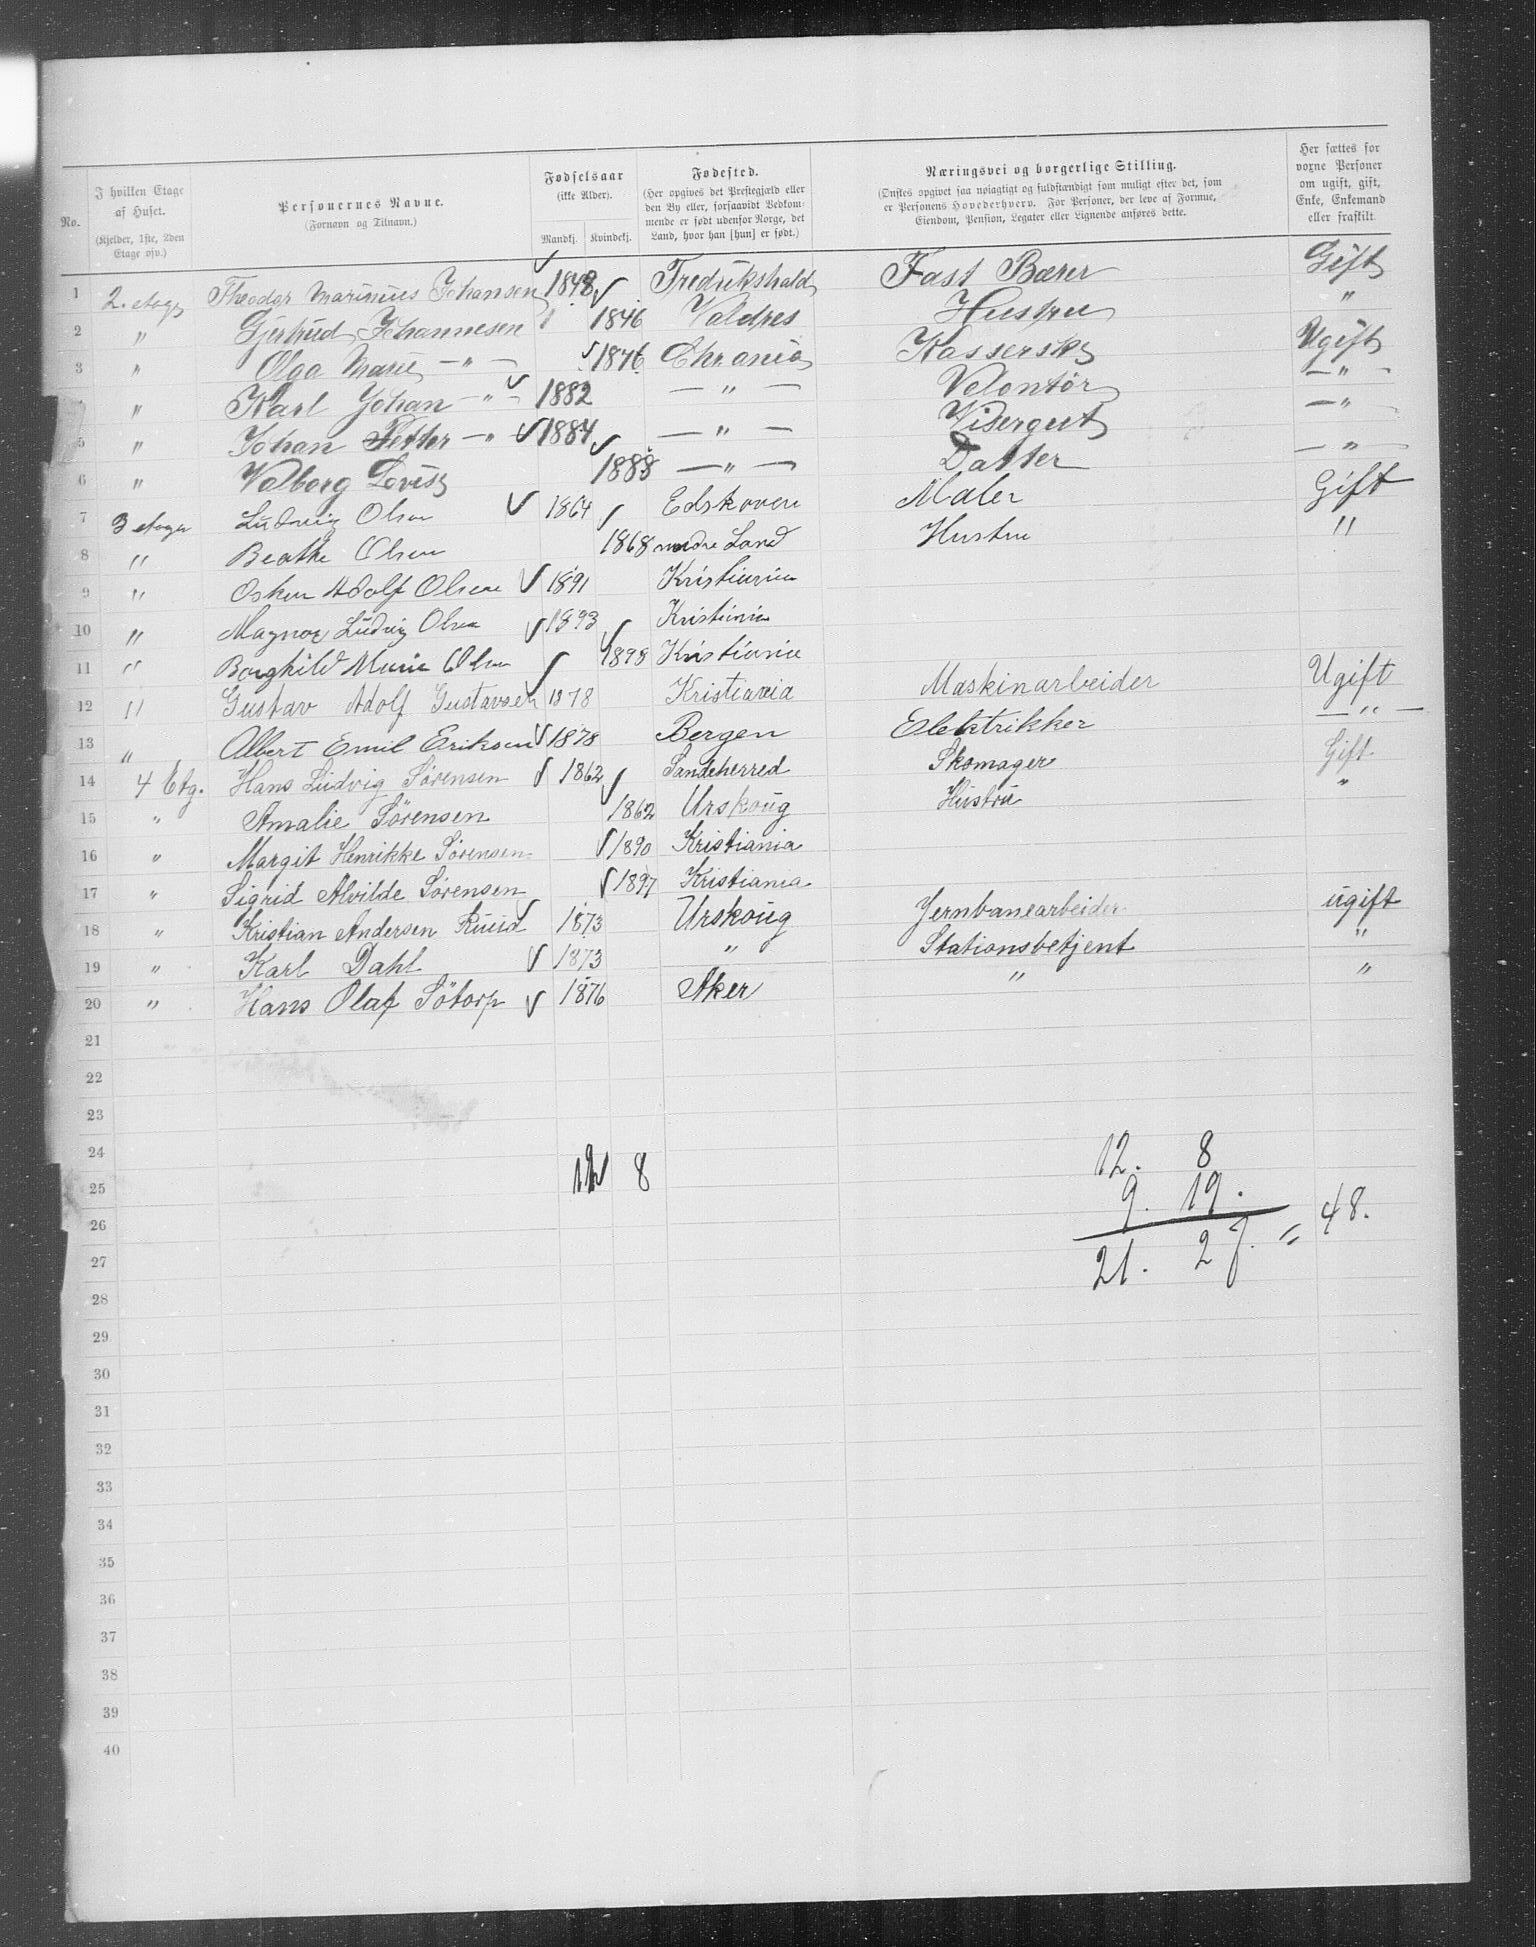 No. | I hvilken Etage af Huset. (Kjelder, 1ste, 2den Etage osv.) | Personernes Navne. (Fornavn og Tilnavn.) | Fødselsaar (ikke Alder). Mandkj. | Kvindekj. | Fødested. (Her opgives det Prestegjæld eller den By eller, forsaavidt Vedkommende er født udenfor Norge, det Land, hvor han [hun] er født.) | Næringsvei og borgerlige Stilling. (Ønskes opgivet saa nøiagtigt og fuldstændigt som muligt efter det, som er Personens Hovederhverv. For Personer, der leve af Formue, Eiendom, Pension, Legater eller Lignende anføres dette. | Her sættes for voxne Personer om ugift, gift, Enke, Enkemand eller fraskilt
1 2. etage Theodor Marinius Johansen 1848 Fredrikshald Fast Bærer Gift
2 " Gjertrud Johannesen 1846 Valdres Hustru "
3 " Olga Marie — " — 1876 Chrania Kasserske Ugift
" Karl Johan — " — 1882 — " — Volontør — " —
5 " Johan Petter — " 1884 — " — Visergut — "
6 " Valborg Lovise 1888 — " — Datter — " —
7 3 etage Ludvig Olsen 1864 Edskoven Maler Gift
8 " Beathe Olsen 1868 nordre Land Hustru "
9 " Oskar Adolf Olsen 1891 Kristiania
10 " Magnor Ludvig Olsen 1893 Kristiania
11 " Borghild Marie Olsen 1898 Kristiania
12 " Gustav Adolf Gustavsen 1878 Kristiania Maskinarbeider Ugift
13 " Albert Emil Eriksen 1878 Bergen Elektrikker — " —
14 4 Etg. Hans Ludvig Sørensen 1862 Sandeherred Skomager Gift
15 " Amalie Sørensen 1862 Urskoug Hustru "
16 " Margit Henrikke Sørensen 1890 Kristiania
17 " Sigrid Alvilde Sørensen 1897 Kristiania
18 " Kristian Andersen Ruud 1873 Urskoug Jernbanearbeider ugift
19 " Karl Dahl 1873 " Stationsbetjent "
20 " Hans Olaf Søtorp 1876 Aker " "
21
22
23
24 12. 8
25 12 8 9. 19.
26 21. 27. = 48.
27
28
29
30
31
32
33
34
35
36
37
38
39
40